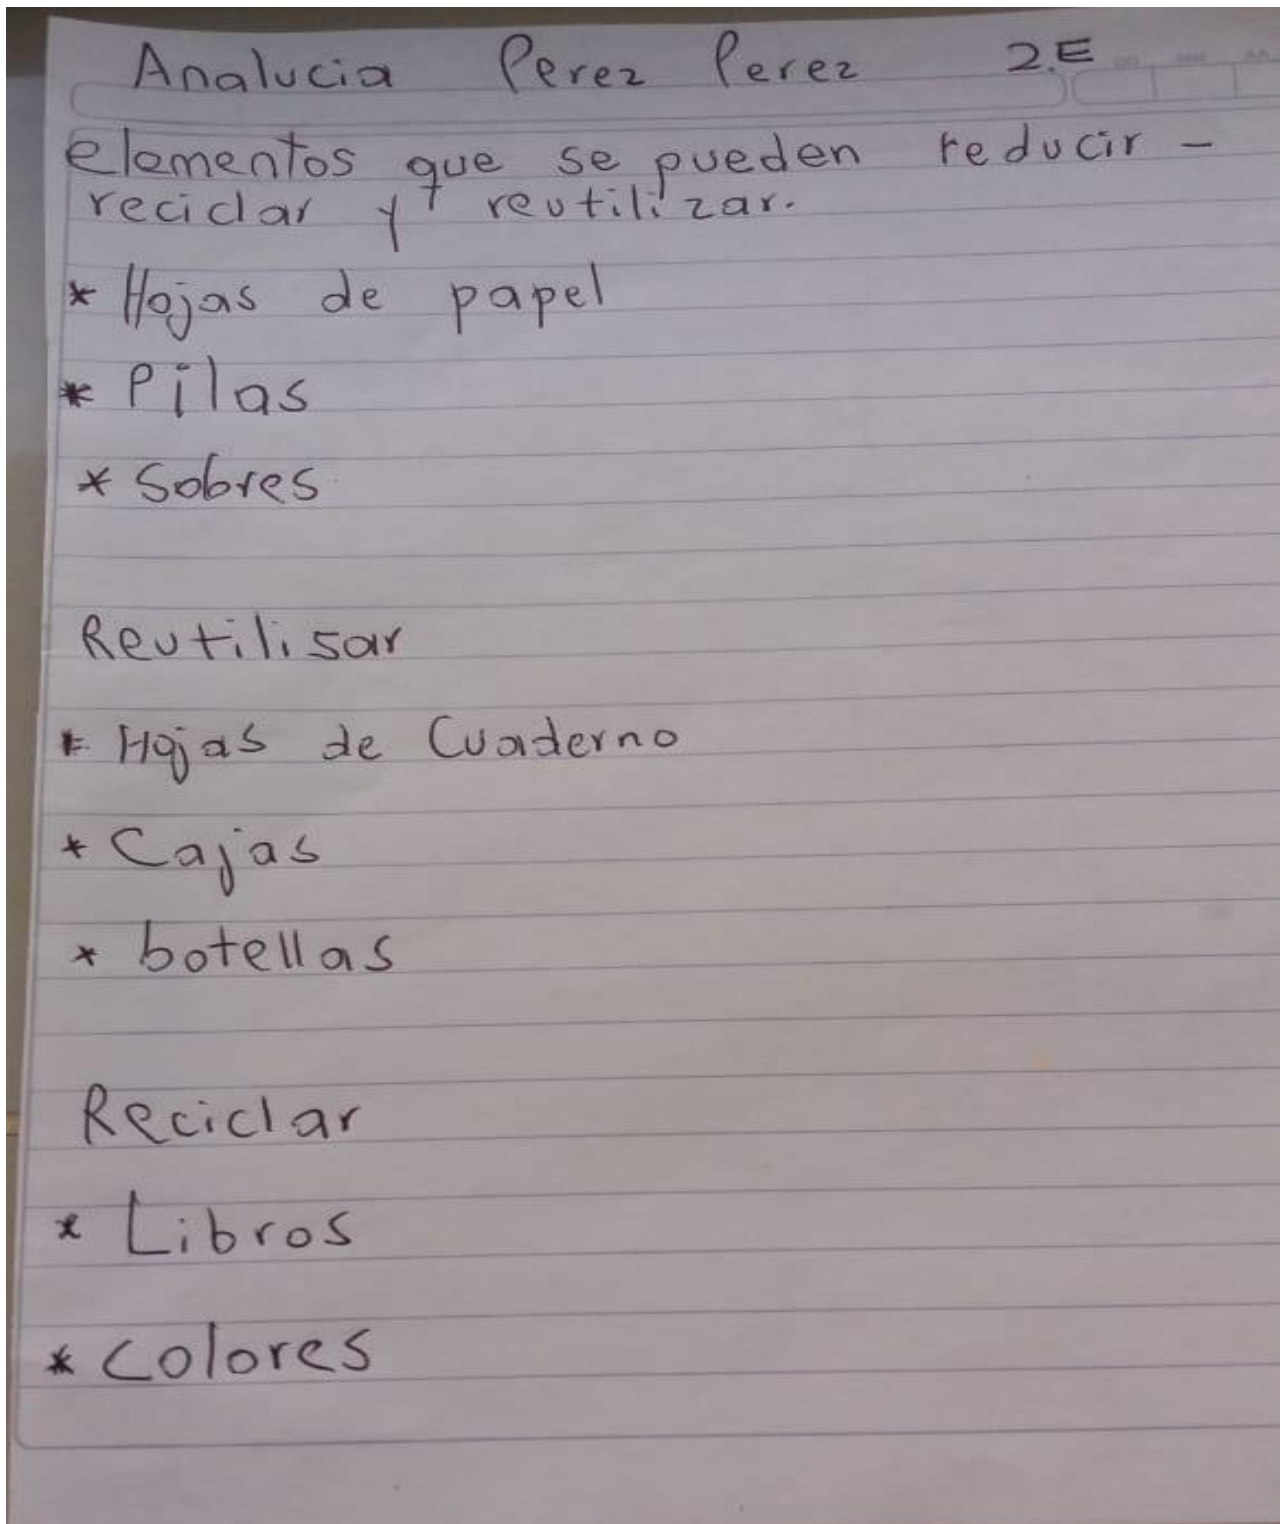 Analucia Perez Perez 2.E
elementos que se pueden reducir -
reciclar y reutilizar.
* Hojas de papel
* Pilas
* Sobres
Reutilisar
* Hojas de Cuaderno
* Cajas
* botellas
Reciclar
* Libros
* Colores